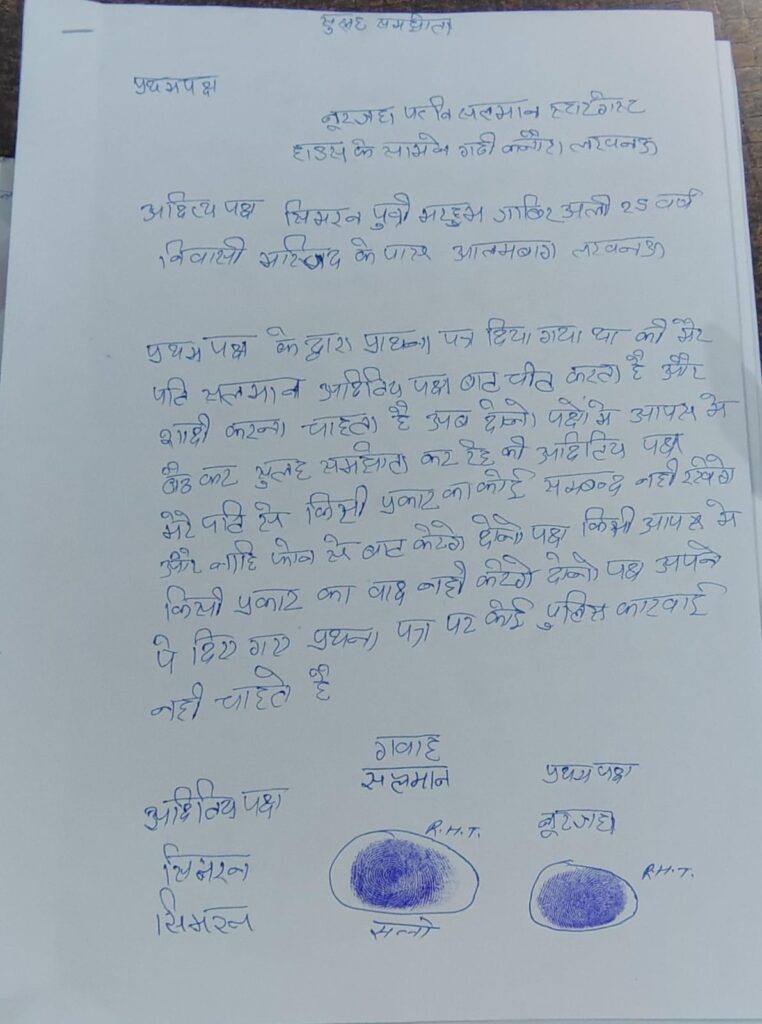 सुलह समझौता
प्रथम पक्ष
नूरजहा पत्नि सलमान स्टारगेस्ट
हाउस के सामने गढी कनौरा लखनऊ
अद्वित्य पक्ष सिमरन पुत्री मरहुम जाबिर अली 25 वर्ष
निवासी मस्जिद के पास आलमबाग लखनऊ
प्रथम पक्ष के द्वारा प्राथना पत्र दिया गया था की मेरे
पति सलमान अद्वितिय पक्ष बात चीत करता है और
शादी करना चाहता है अब दोनो पक्षों मे आपस मे
बैठ कर सुलह समझोता कर रहे की अद्वितिय पक्ष
मेरे पति से किसी प्रकार का कोई सम्बन्द नही रखेगे
और नाहि फोन से बात करेगे दोनो पक्ष किसी आपस मे
किसी प्रकार का वाद नही करेगे दोनो पक्ष अपने
पे दिए गए प्रथना पत्र पर कोई पुलिस कारवाई
नही चाहते है
गवाह
सलमान
प्रथम पक्ष
अद्वितिय पक्ष
नूरजहा
R.H.T.
सिमरन
R.H.T.
सिमरन